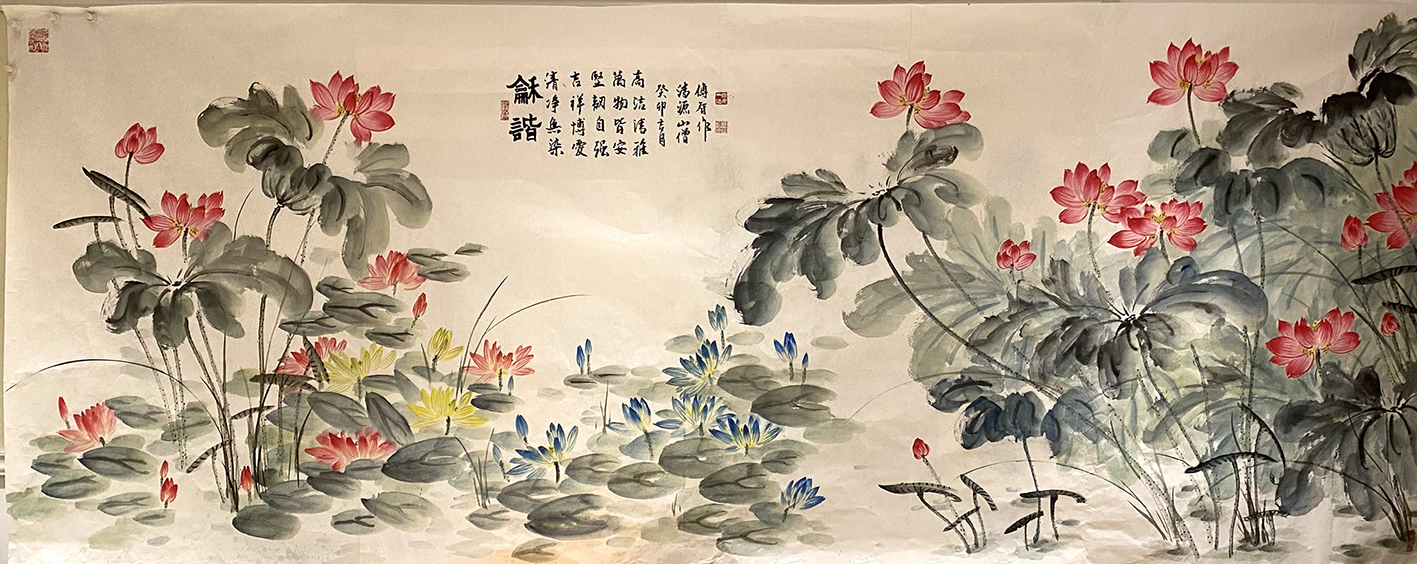 龢諧
清净無染
吉祥博愛
堅韌自强
萬物皆安
高洁清雅
癸卯吉月
清源山僧
作